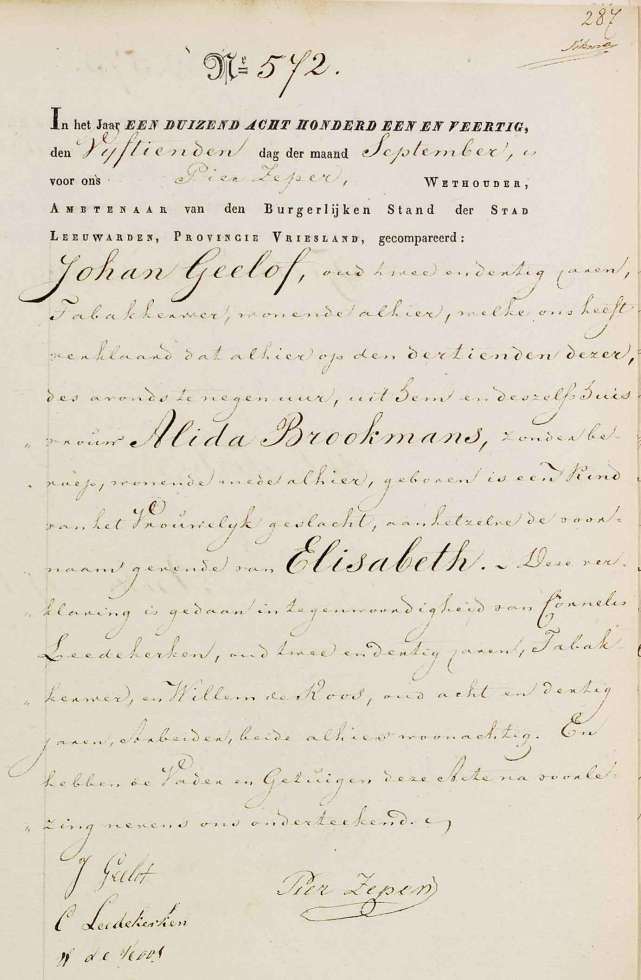 287
Nº 572.
In het Jaar EEN DUIZEND ACHT HONDERD EEN EN VEERTIG,
den Vyftienden dag der maand September, is
voor ons Pier Zeper, WETHOUDER,
AMBTENAAR van den Burgerlijken Stand der STAD
LEEUWARDEN, PROVINCIE VRIESLAND, gecompareerd:
Johan Geelof, oud twee en dertig jaren,
Tabakkerwer, wonende alhier, welke ons heeft
verklaard dat alhier op den dertienden dezer,
des avonds te negen uur, uit hem en deszelfs huis
„ vrouw Alida Brookmans, zonder be-
„ roep, wonende mede alhier, geboren is een Kind
van het Vrouwelyk geslacht, aan hetzelve de voor-
„ naam gevende van Elisabeth. ~ Deze ver-
„ klaring is gedaan in tegenwoordigheid van Cornelis
Leedekerken, oud twee en dertig jaren, Tabak-
„ kerwer, en Willem de Roos, oud acht en dertig
jaren, Arbeider, beide alhier woonachtig. En
hebben de Vader en Getuigen deze Acte na voorle-
„ zing nevens ons onderteekend.
J Geelof
Pier Zeper
C Leedekerken
W de Roos